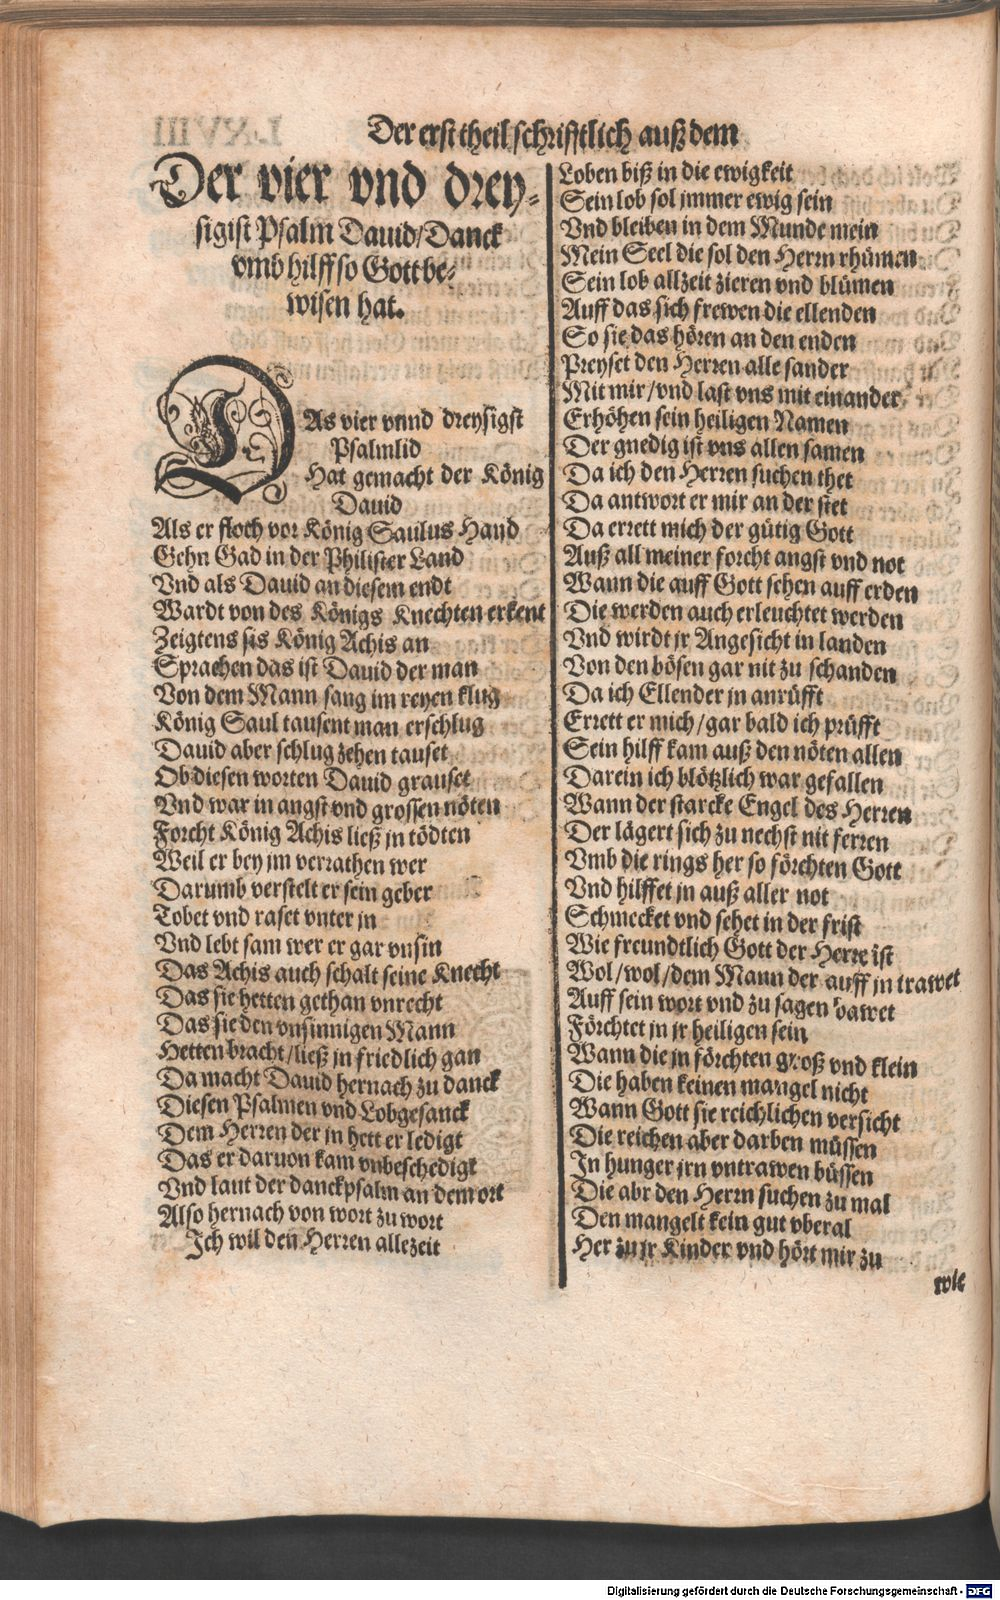 Der erst theil schrifftlich auß dem
Der vier vnd drey-
sigist Psalm Dauid/Danck
vmb hilff so Gott be-
wisen hat.
DAs vier vnnd dreysigst
Psalmlid
Hat gemacht der König
Dauid
Als er floch vor König Saulus Hand
Gehn Gad in der Philister Land
Vnd als Dauid an diesem endt
Wardt von des Königs Knechten erkent
Zeigtens sis König Achis an
Sprachen das ist Dauid der man
Von dem Mann sang im reyen klug
König Saul tausent man erschlug
Dauid aber schlug zehen tauset
Ob diesen worten Dauid grauset
Vnd war in angst vnd grossen nöten
Forcht König Achis ließ jn tödten
Weil er bey jm verrathen wer
Darumb verstelt er sein geber
Tobet vnd raset vnter jn
Vnd lebt sam wer er gar vnsin
Das Achis auch schalt seine Knecht
Das sie hetten gethan vnrecht
Das sie den vnsinnigen Mann
Hetten bracht/ließ jn friedlich gan
Da macht Dauid hernach zu danck
Diesen Psalmen vnd Lobgesanck
Dem Herren der jn hett erledigt
Das er daruon kam vnbeschedigt
Vnd laut der danckpsalm an dem ort
Also hernach von wort zu wort
Ich wil den Herren allezeit
Loben biß in die ewigkeit
Sein lob sol jmmer ewig sein
Vnd bleiben in dem Munde mein
Mein Seel die sol den Herrn rhümen
Sein lob allzeit zieren vnd blümen
Auff das sich frewen die ellenden
So sie das hören an den enden
Preyset den Herren alle sander
Mit mir/vnd last vns mit einander
Erhöhen sein heiligen Namen
Der gnedig ist vns allen samen
Da ich den Herren suchen thet
Da antwort er mir an der stet
Da errett mich der gütig Gott
Auß all meiner forcht angst vnd not
Wann die auff Gott sehen auff erden
Die werden auch erleuchtet werden
Vnd wirdt jr Angesicht in landen
Von den bösen gar nit zu schanden
Da ich Ellender jn anrüfft
Errett er mich/gar bald ich prüfft
Sein hilff kam auß den nöten allen
Darein ich blötzlich war gefallen
Wann der starcke Engel des Herren
Der lägert sich zu nechst nit ferren
Vmb die rings her so förchten Gott
Vnd hilffet jn auß aller not
Schmecket vnd sehet in der frist
Wie freundtlich Gott der Herre ist
Wol/wol/dem Mann der auff jn trawet
Auff sein wort vnd zu sagen bawet
Förchtet jn jr heiligen sein
Wann die jn förchten groß vnd klein
Die haben keinen mangel nicht
Wann Gott sie reichlichen versicht
Die reichen aber darben müssen
In hunger jrn vntrawen büssen
Die abr den Herrn suchen zu mal
Den mangelt kein gut vberal
Her zu jr Kinder vnd hört mir zu
wie
Digitalisierung gefördert durch die Deutsche Forschungsgemeinschaft - DFG